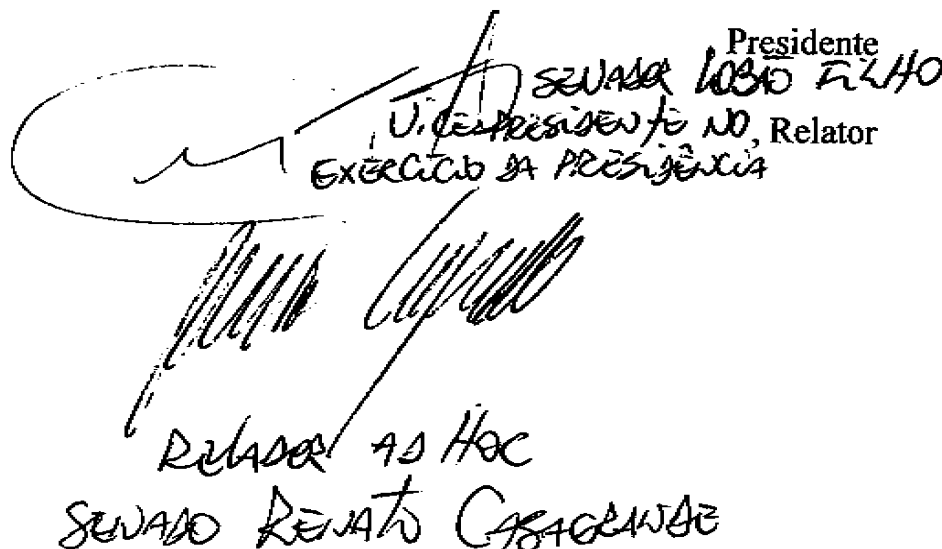 Presidente
SENADOR LOBÃO FILHO
VICE-PRESIDENTE NO
, Relator
EXERCÍCIO DA PRESIDÊNCIA
RELADOR AD HOC
SENADO RENATO CASAGRANDE